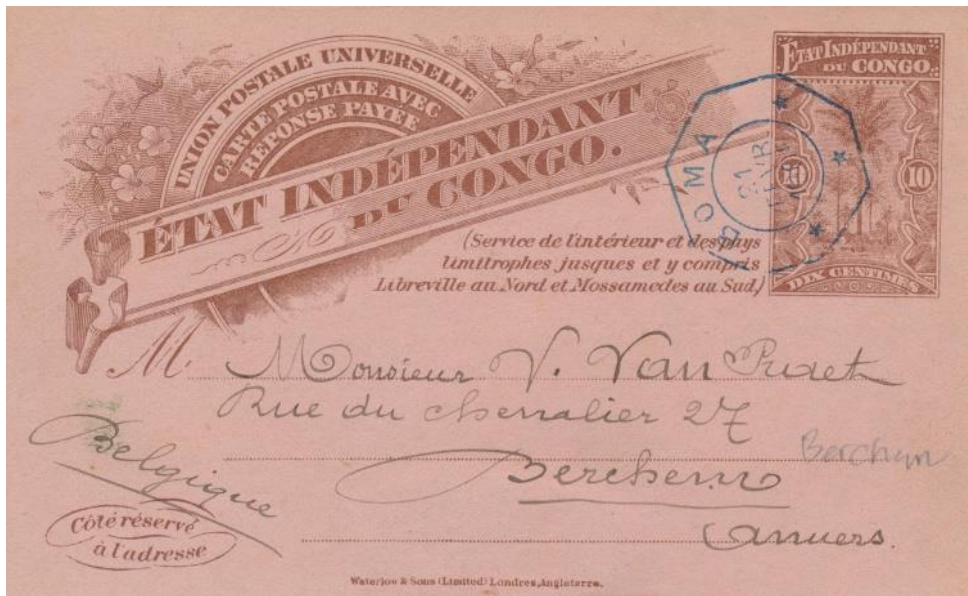 UNION POSTALE UNIVERSELLE
CARTE POSTALE AVEC
RÉPONSE PAYÉE
ÉTAT INDÉPENDANT
DU CONGO.
ÉTAT INDÉPENDANT
DU CONGO.
10 10
DIX CENTIMES
BOMA
21
(Service de l'intérieur et des pays
limitrophes jusques et y compris
Libreville au Nord et Mossamedes au Sud.)
M. Monsieur V. Van
Rue du chevalier 27
Berchem
Berchem
Anvers.
Belgique
Côté réservé
à l'adresse
Waterlow & Sons (Limited) Londres, Angleterre.